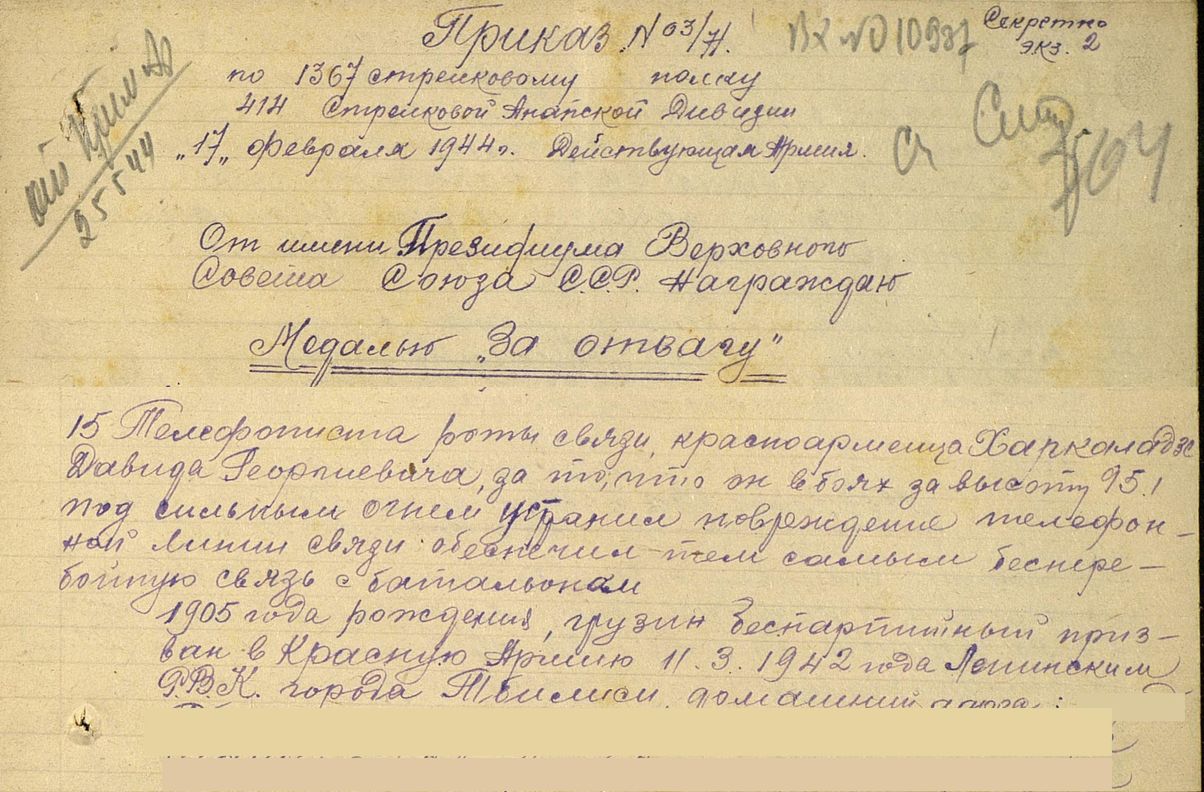 Приказ № 03/н.
Вх №010937
Секретно
экз. 2
по 1367 стрелковому полку
414 Стрелковой Анапской Дивизии
"17" февраля 1944 г. Действующая Армия.
25 5 44
От имени Президиума Верховного
Совета Союза С.С.Р. Награждаю
Медалью "За отвагу"
15 Телефониста роты связи, красноармейца Харкаладзе
Давида Георгиевича, за то, что он в боях за высоту 95.1
под сильным огнем устранил повреждение телефон-
ной линии связи обеспечил тем самым беспере-
бойную связь с батальоном
1905 года рождения, грузин беспартийный приз-
ван в Красную Армию 11.3.1942 года Ленинским
Р.В.К. города Тбилиси, домашний адрес: